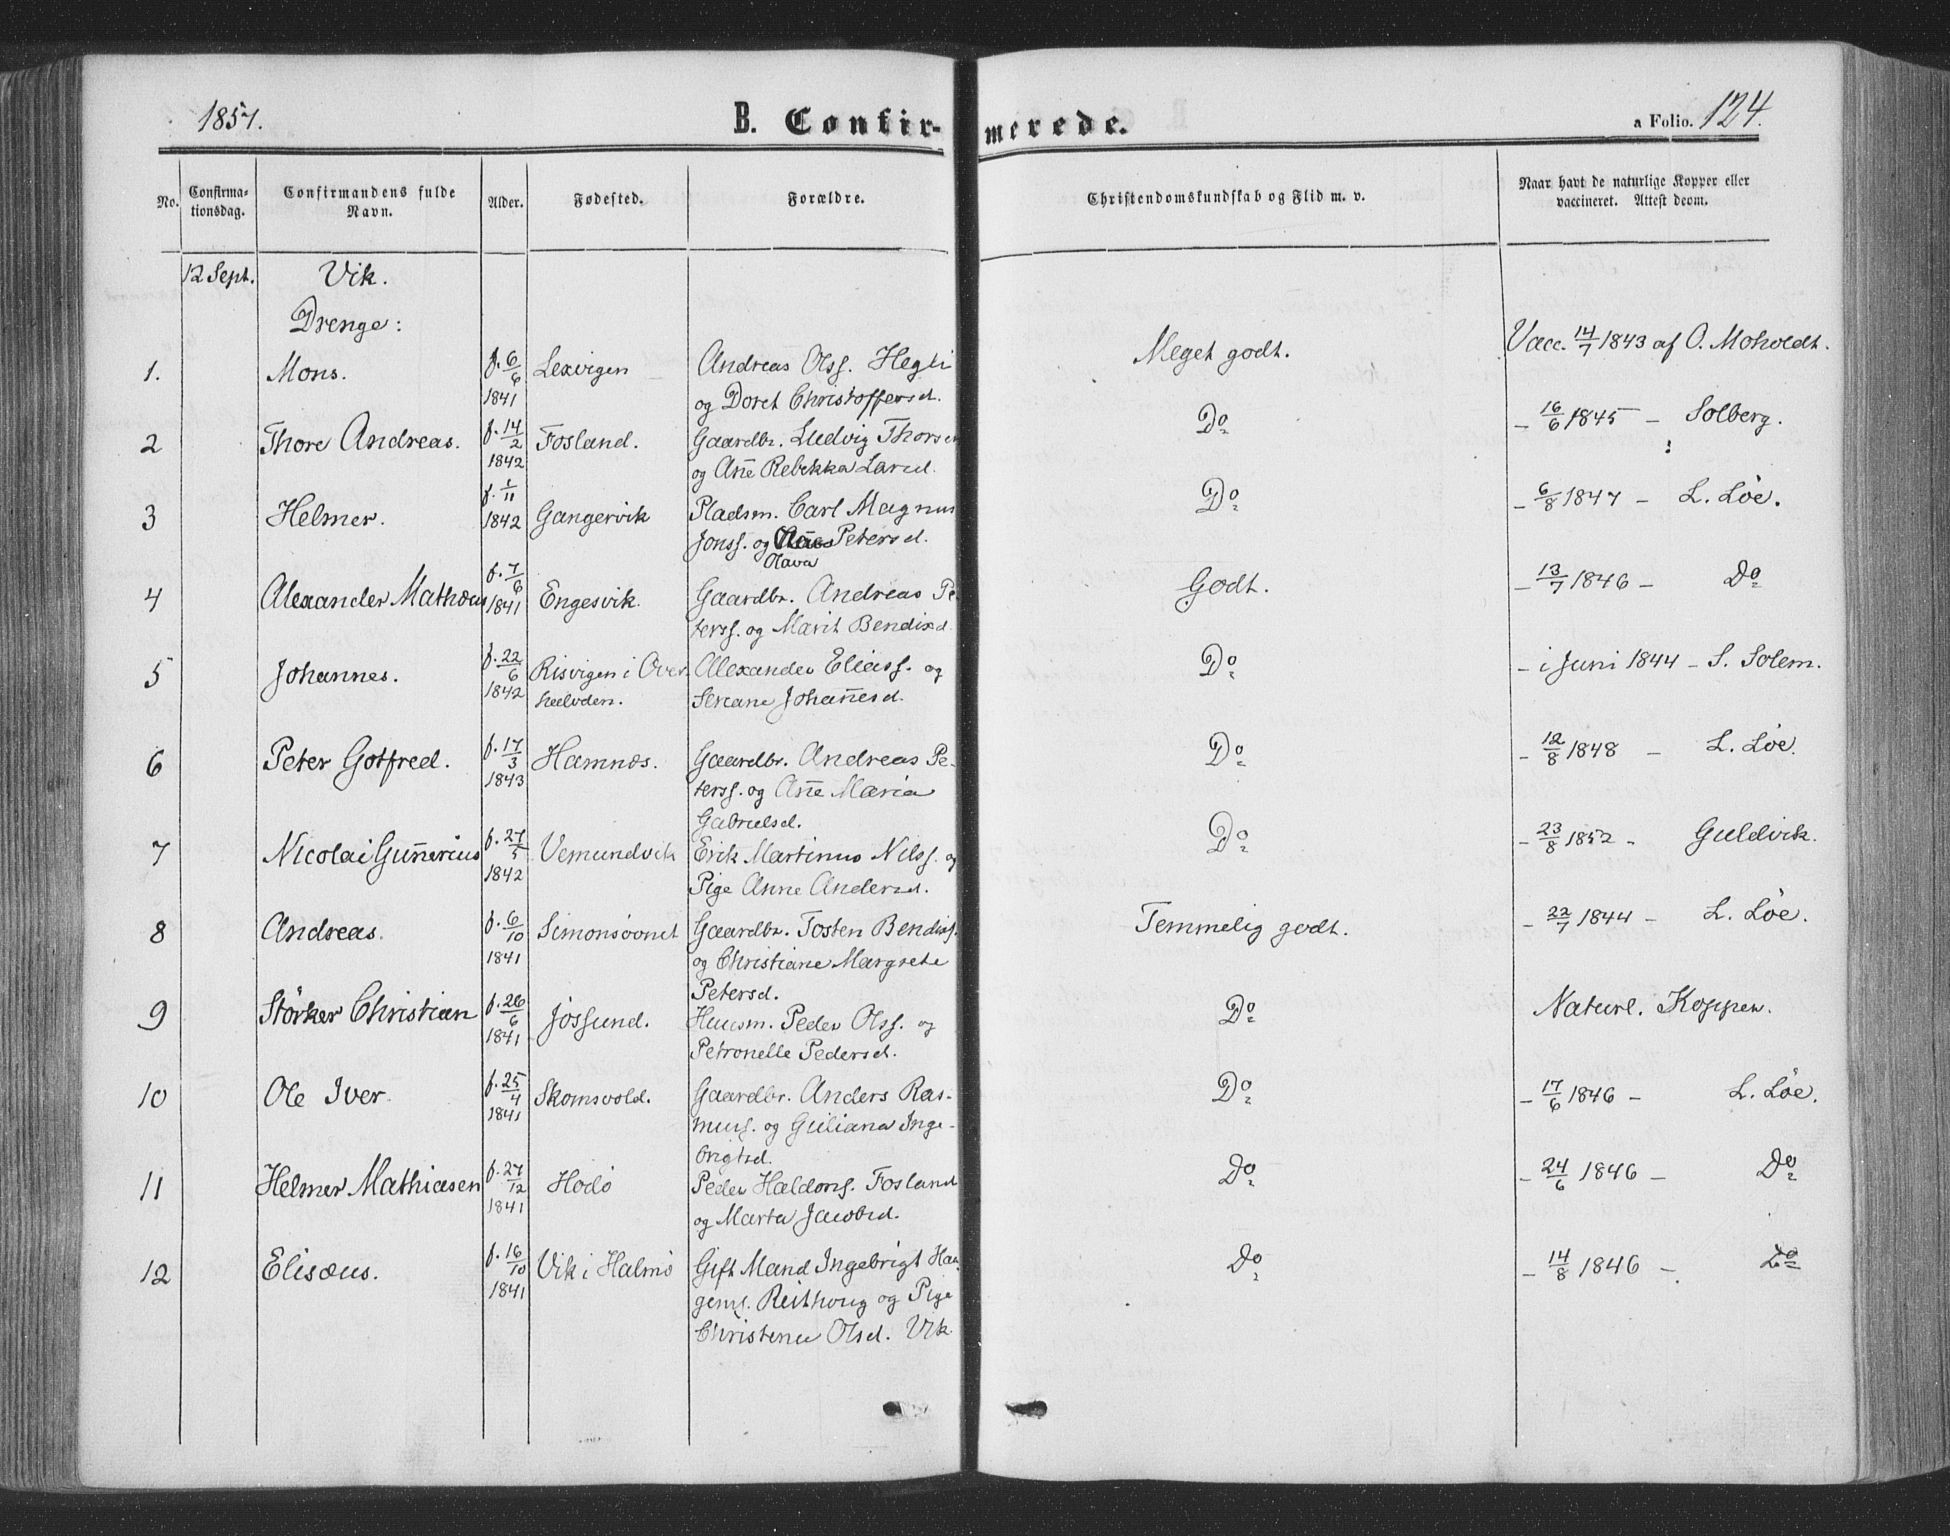 1857.
B. Confir-
merede.
a Folio. 124.
No.
Confirma-
tionsdag.
Confirmandens fulde
Navn.
Alder.
Fødested.
Forældre.
Christendomskundskab og Flid m. v.
Naar havt de naturlige Kopper eller
vaccineret. Attest deom.
12 Sept. Vik.
Drenge:
1. Mons. f. 6/6 1841 Lexvigen Andreas Olss. Hegli
og Doret Christoffersd.
Meget godt. Vacc. 14/7 1843 af O. Moholdt.
2 Thore Andreas. f. 14/2 1842 Fosland. Gaardbr. Ludvig Thorsen
og Ane Rebekka Larsd.
Do - 16/6 1845 - Solberg.
3 Helmer. f. 1/11 1842 Gangervik Pladsm. Carl Magnus
Jonss. og Petersd.
Olava
Do - 6/8 1847 - L. Löe.
4 Alexander Mathæus f. 7/6 1841 Engesvik. Gaardbr. Andreas Pe-
terss. og Marit Bendixd.
Godt. - 13/7 1846 - Do
5 Johannes. f. 22/6 1842 Risvigen i Over- Alexander Eliass. og
Johanesd.
Do - i Juni 1844 - S. Solem.
6 Peter Gotfred. f. 17/3 1843 Hamnæs. Gaardbr. Andreas Pe-
terss. og Ane Maria
Gabrielsd.
Do - 12/8 1848 - L. Löe.
7 Nicolai Gunerius f. 27/5 1842 Vemundvik Erik Martinus Nilss. og
Pige Anne Andersd.
Do - 23/8 1852 - Guldvik.
8 Andreas. f. 6/10 1841 Simonsövnet Gaardbr. Tosten Bendixs.
og Christiane Margrete
Petersd.
Temmelig godt. - 22/7 1844 - L. Löe.
9 Störker Christian f. 26/6 1841 Jössund. Huusm. Peder Olss. og
Petronelle Pedersd.
Do Naturl. Kopper.
10 Ole Iver f. 25/4 1841 Skomsvold. Gaardbr. Anders Ras-
muss. og Guliana Inge-
brigtsd.
Do - 17/6 1846 - L. Löe.
11 Helmer Mathiasen f. 27/12 1841 Hodö Peder Haldors. Fosland
og Marta Jacobsd.
Do - 24/6 1846 - Do
12 Elisæus. f. 16/10 1841 Vik i Halmö Gift Mand Ingebrigt Haa-
gens. Reithoug og Pige
Christence Olsd. Vik
Do - 14/8 1846 - Do